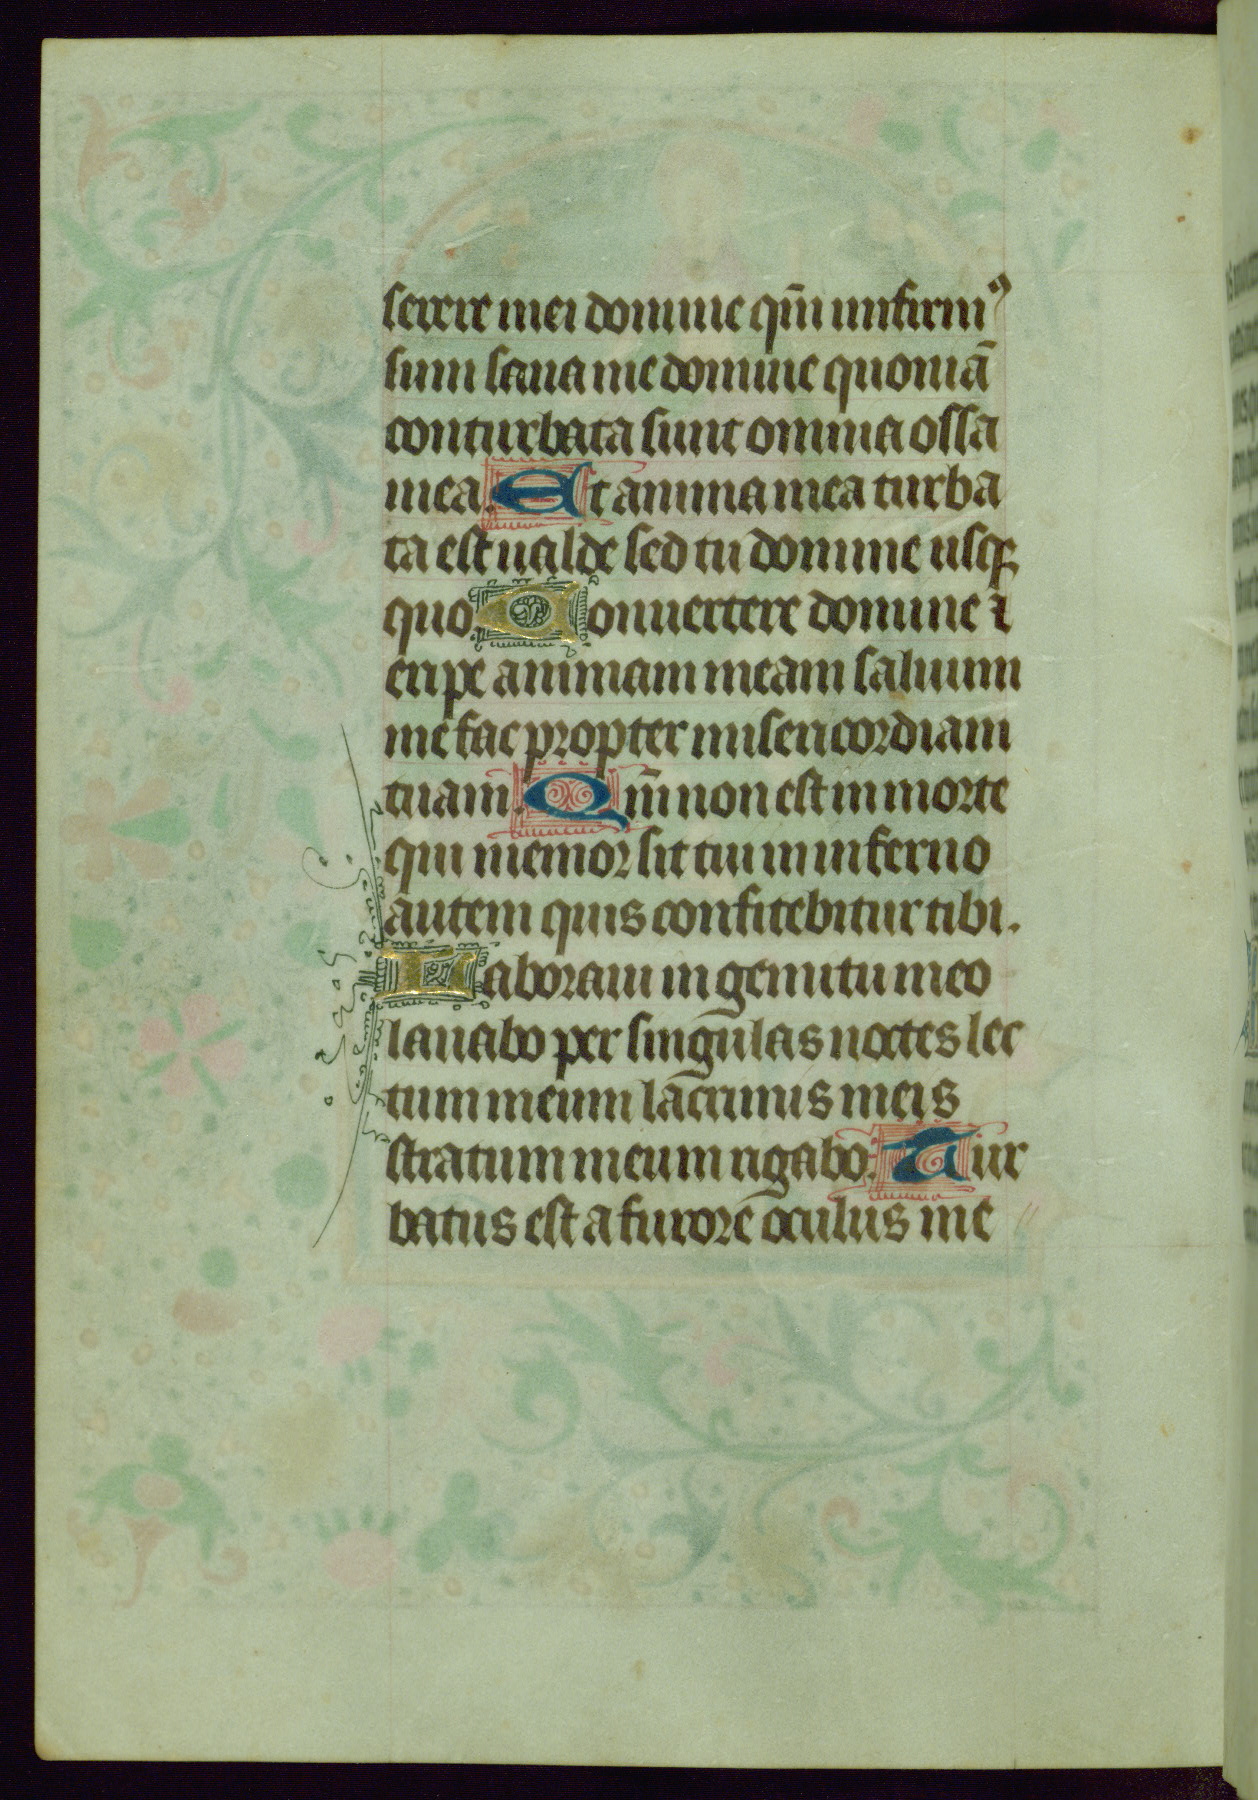 serere mei domine qm̄ infirmꝰ
sum sana me domine quoniā
conturbata sunt omnia ossa
mea. Et anima mea turba
ta est ualde sed tu domine usqꝫ
quo. Conuertere domine ⁊
eripe animam meam saluum
me fac propter misericordiam
tuam. Qm̄ non est in morte
qui memor sit tui in inferno
autem quis confitebitur tibi.
Laboraui in gemitu meo
lauabo per singulas noctes lec
tum meum lacrimis meis
stratum meum rigabo. Tur
batus est a furore oculus me